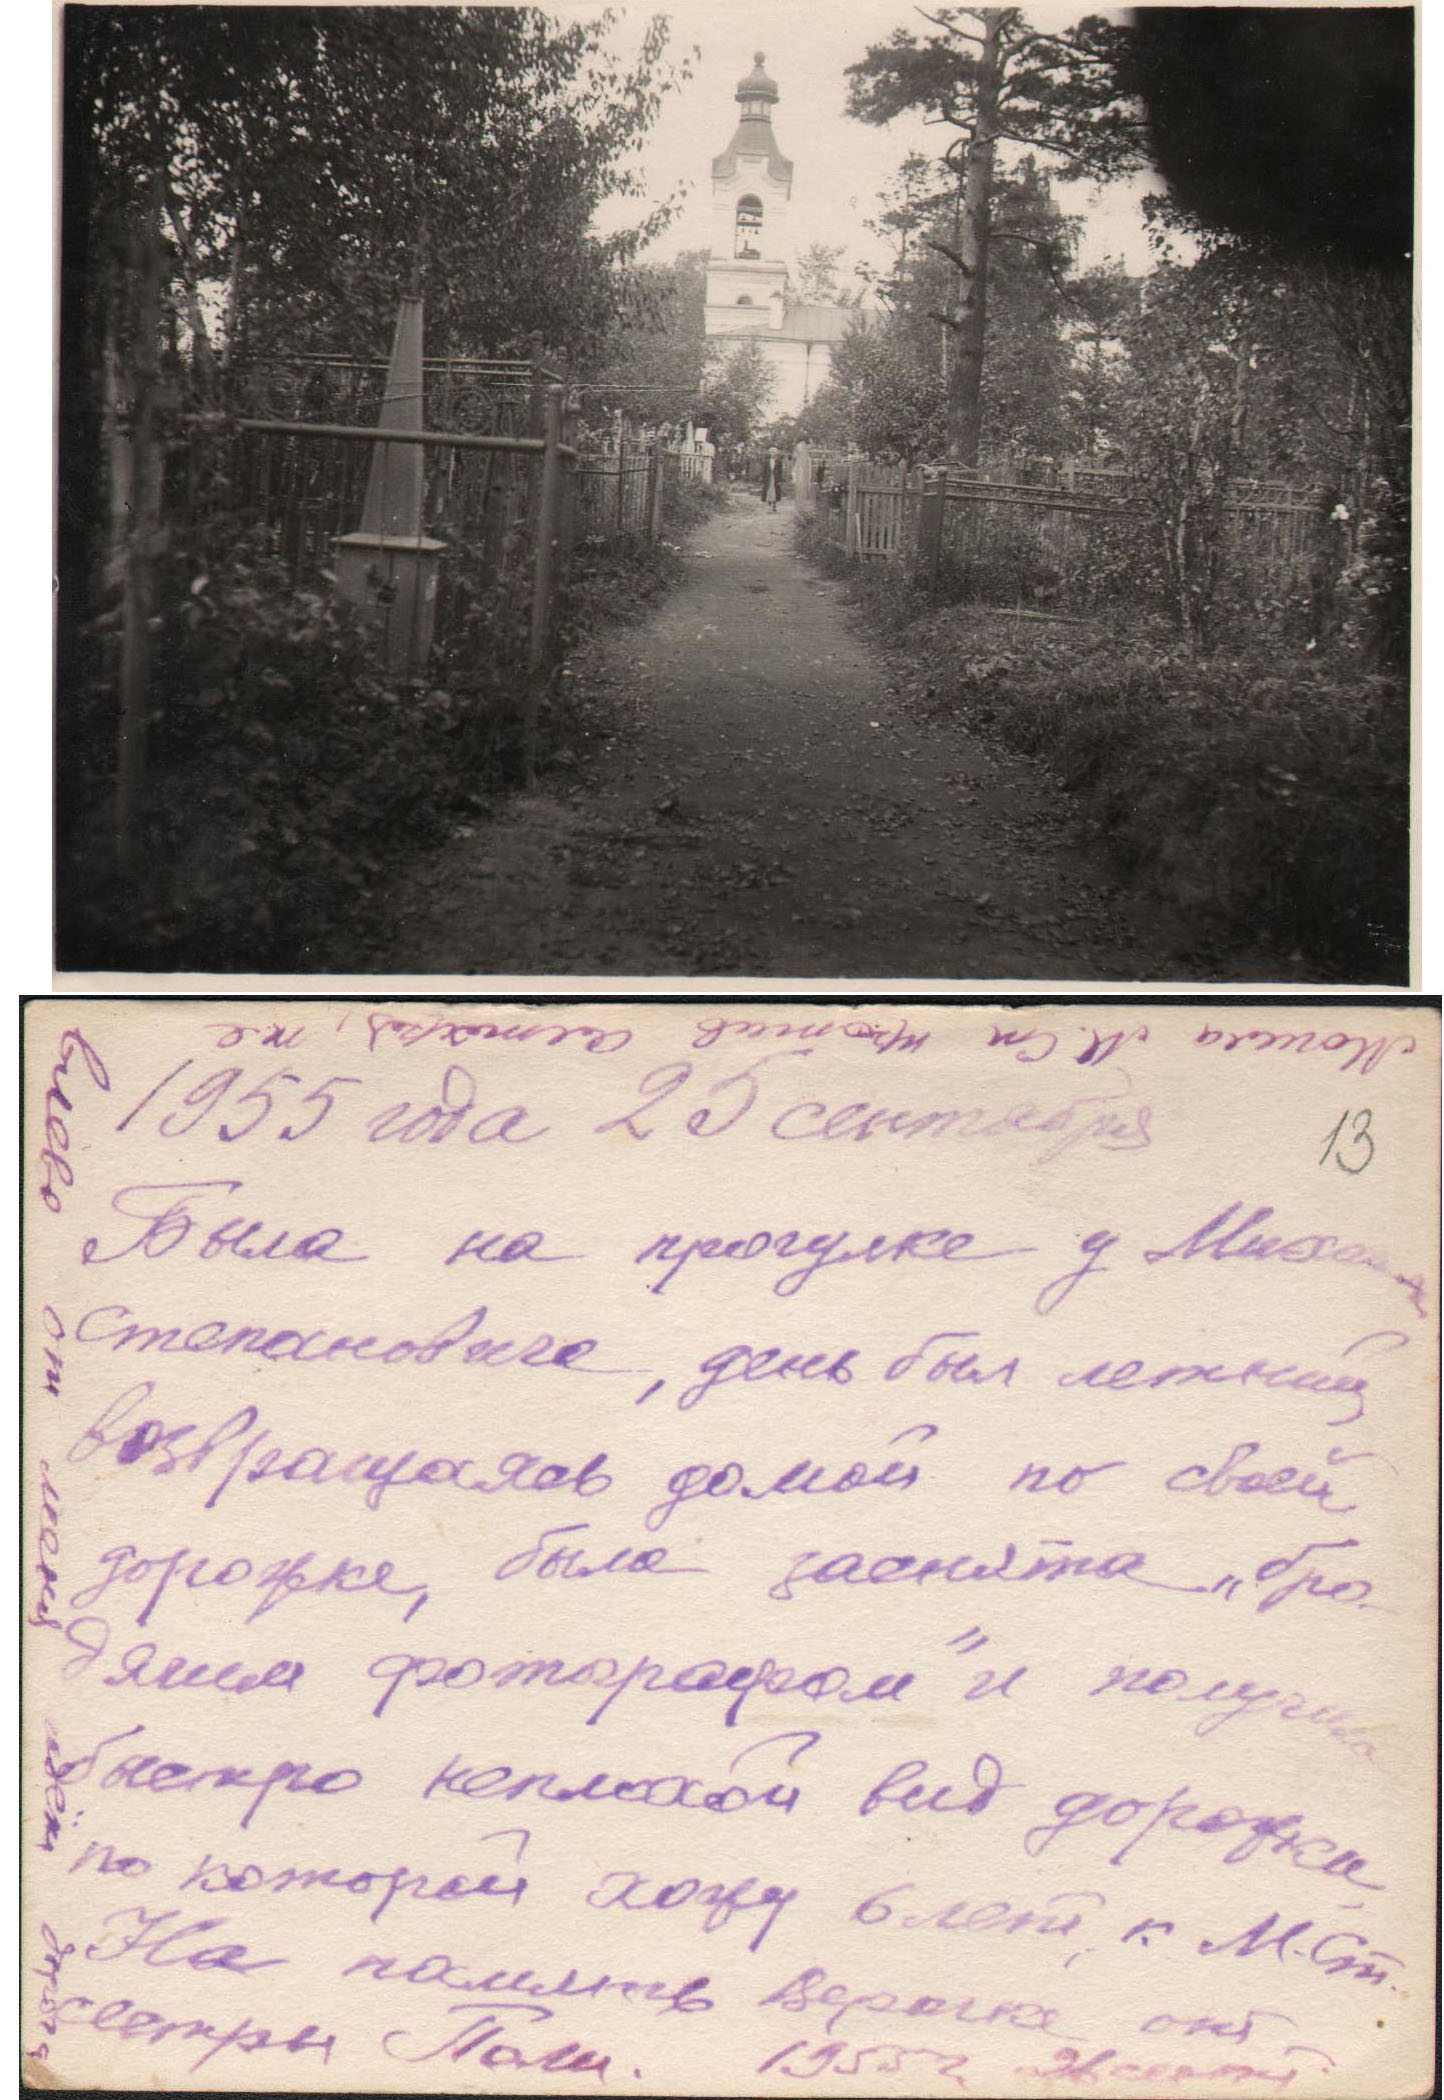 1955 года 25 сентября
13
Была на прогулке у Михаила
Степановича, день был летний
возвращаясь домой по своей
дорожке, была заснята „бро-
дячим фотографом" и получила
быстро неплохой вид дорожки,
по которой хожу 6 лет, к М.Ст.
На память Верочке от
сестры Поли. 1955 г.
Могила М. Ст против
влево от меня идёт